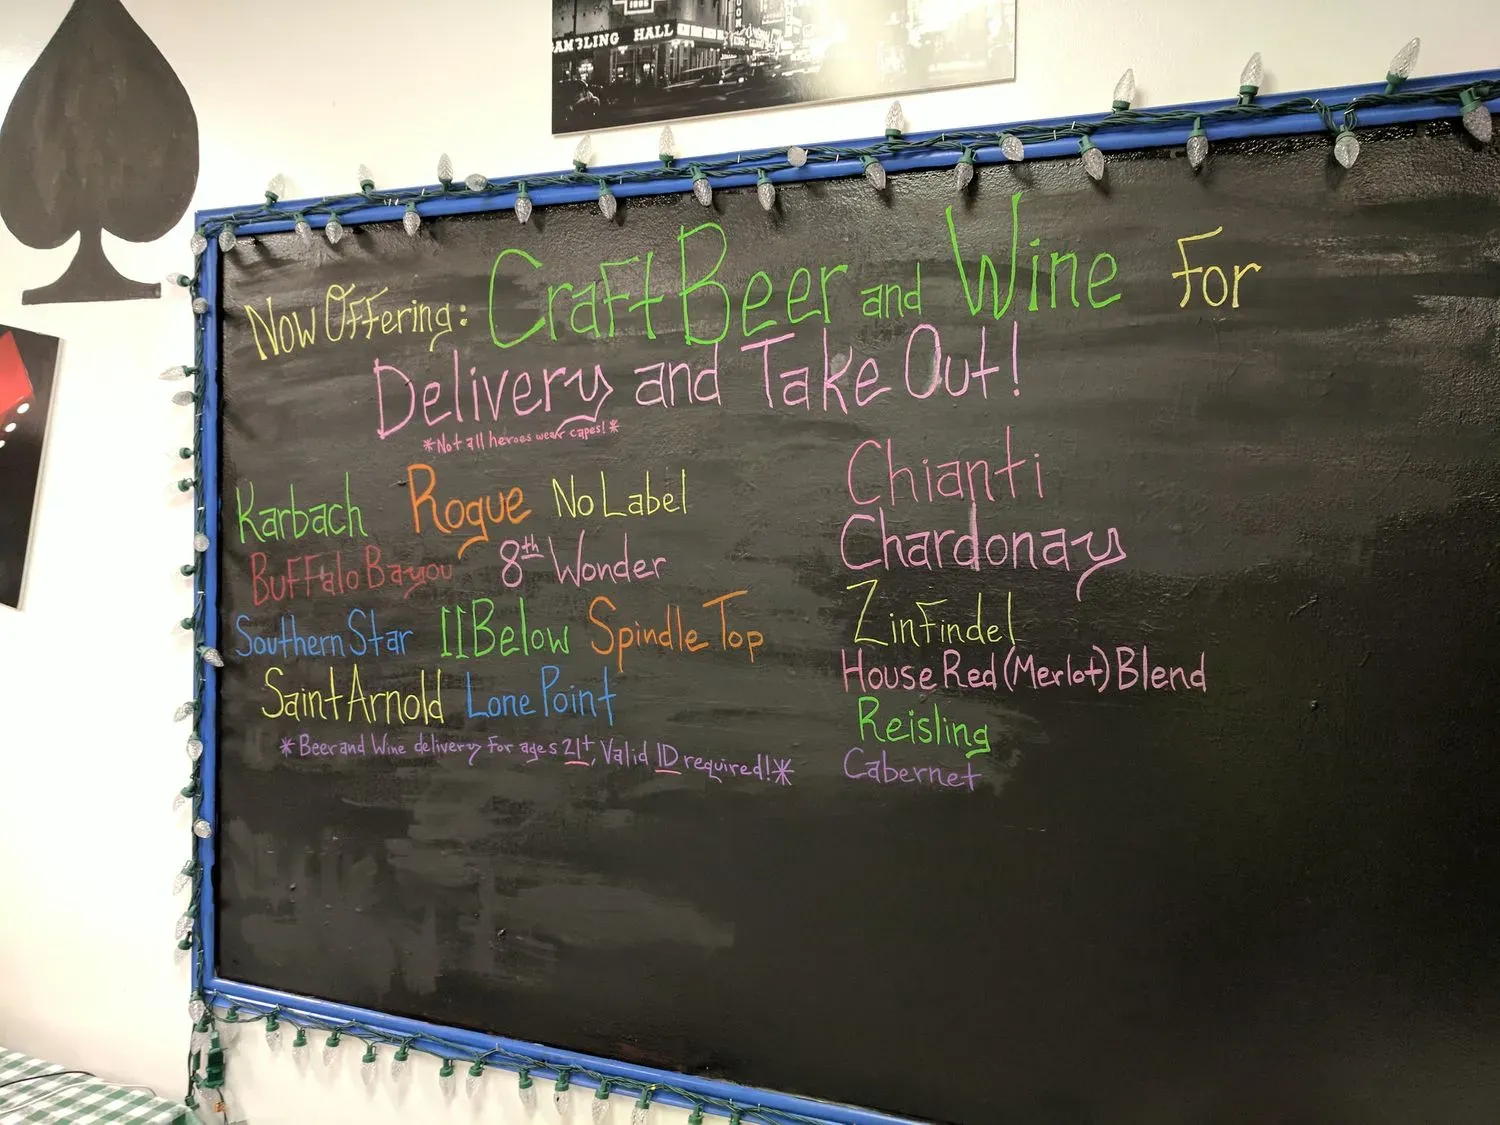 GAMBLING HALL
Now Offering: Craft Beer and Wine for
Delivery and Take Out!
*Not all heroes wear capes!*
Karbach Rogue No Label
Buffalo Bayou 8th Wonder
Southern Star 11 Below Spindle Top
Saint Arnold Lone Point
*Beer and Wine delivery for ages 21+, Valid ID required!*
Chianti
Chardonay
Zinfindel
House Red (Merlot) Blend
Reisling
Cabernet